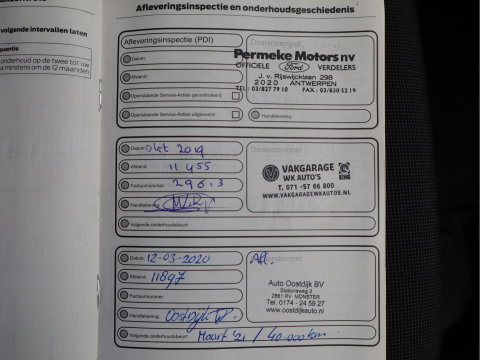 Afleveringsinspectie en onderhoudsgeschiedenis
volgende intervallen laten
onderhoud op de twee tot uw
minstens om de 12 maanden
Afleveringsinspectie (PDI)
Dealerstempel
Datum:
Afstand:
Openstaande Service-Acties gecontroleerd:
Openstaande Service-Acties uitgevoerd:
Permeke Motors nv
OFFICIELE Ford VERDELERS
J. v. Rijswijcklaan 298
2020 ANTWERPEN
TEL: 03/827 79 10 FAX: 03/830 52 19
Handtekening:
Datum: Okt 2019
Afstand: 11455
Factuurnummer: 29613
Handtekening:
Volgende onderhoudsbeurt:
Dealerstempel
VAKGARAGE
WK AUTO'S
T. 071 -57 66 800
WWW.VAKGARAGEWKAUTOS.NL
Datum: 12-03-2020
Afstand: 11897
Factuurnummer:
Handtekening:
Volgende onderhoudsbeurt: Maart '21 / 40.000km.
Dealerstempel
Auto Oostdijk BV
Stationsweg 3
2681 RV MONSTER
Tel. 0174 - 24 59 27
www.oostdijkauto.nl